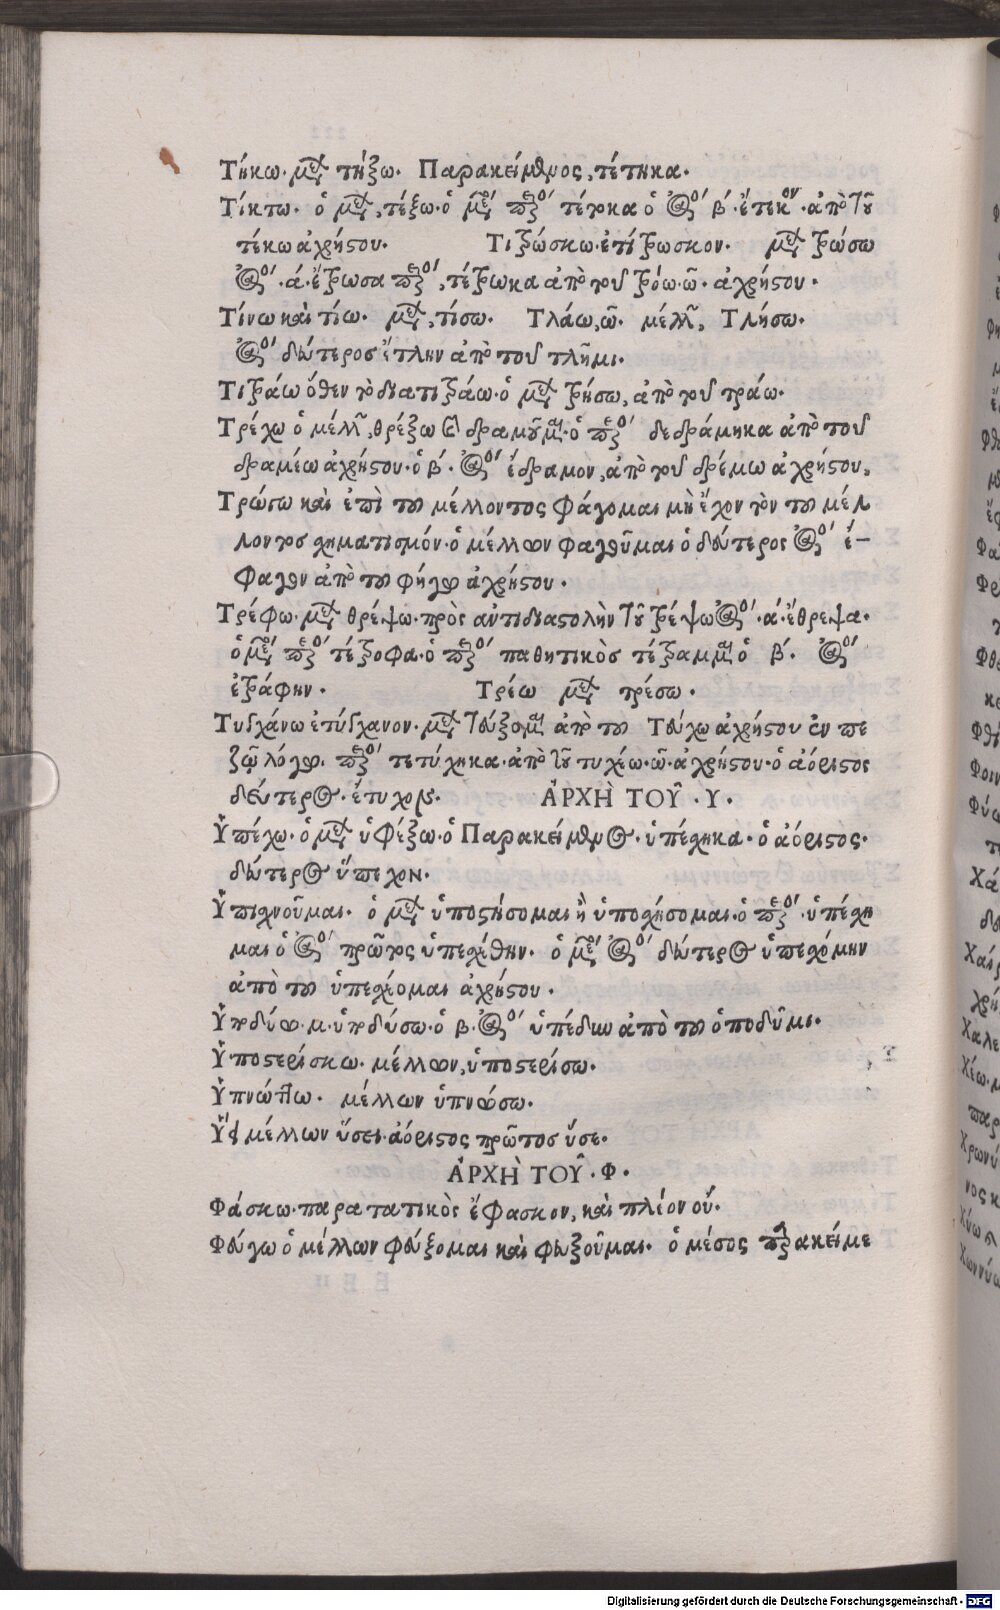 Τήκω· μέλ τήξω· Παρακείμενος, τέτηκα·
Τίκτω· ὁ μέλ, τέξω· ὁ μέσ παρξ τέτοκα ὁ ἀόρ β· ἔτεκον· ἀπὸ τοῦ
τέκω ἀχρήστου· Τιτρώσκω· ἐτίτρωσκον· μέλ τρώσω
ἀόρ· ά· ἔτρωσα παρξ, τέτρωκα ἀπὸ τοῦ τρόω· ῶ· ἀχρήστου·
Τίνω καὶ τίω· μέλ, τίσω· Τλάω, ῶ· μέλλ, Τλήσω·
ἀόρ δεύτερος ἔτλην ἀπὸ τοῦ τλῆμι·
Τιτράω ὅθεν τὸ διατιτράω· ὁ μέλ τρήσω, ἀπὸ τοῦ τράω·
Τρέχω ὁ μέλλ, θρέξω καὶ δραμοῦμαι· ὁ παρξ δεδράμηκα ἀπὸ τοῦ
δραμέω ἀχρήστου· ὁ β· ἀόρ ἔδραμον, ἀπὸ τοῦ δρέμω ἀχρήστου,
Τρώγω καὶ ἐπὶ τοῦ μέλλοντος φάγομαι μὴ ἔχον τὸν τοῦ μέλ
λοντος σχηματισμόν· ὁ μέλλων φαγοῦμαι ὁ δεύτερος ἀόρ ἔ-
φαγον ἀπὸ τοῦ φήγω ἀχρήστου·
Τρέφω· μέλ θρέψω· πρὸς ἀντιδιαστολὴν τοῦ τρέψω ἀόρ· ά· ἔθρεψα·
ὁ μέσ παρξ τέτροφα· ὁ παρξ παθητικὸς τέτραμμαι ὁ β· ἀόρ
ἐτράφην· Τρέω μέλ τρέσω·
Τυγχάνω ἐτύγχανον· μέλ τεύξομαι ἀπὸ τοῦ Τεύχω ἀχρήστου ἐν πε
ζῷ λόγῳ· παρξ τετύχηκα· ἀπὸ τοῦ τυχέω· ῶ· ἀχρήστου· ὁ ἀόριστος
δεύτερος· ἔτυχον· ἈΡΧῊ ΤΟΥ͂ · Υ ·
Ὑπέχω· ὁ μέλ ὑφέξω· ὁ Παρακείμενος· ὑπέσχηκα· ὁ ἀόριστος·
δεύτερος ὕπεχον·
Ὑπισχνοῦμαι· ὁ μέλ ὑποστήσομαι ἢ ὑποσχήσομαι· ὁ παρξ· ὑπέσχη
μαι ὁ ἀόρ πρῶτος ὑπεσχέθην· ὁ μέσ ἀόρ δεύτερος ὑπεσχόμην
ἀπὸ τοῦ ὑπεσχέομαι ἀχρήστου·
Ὑποδύω· μ· ὑποδύσω· ὁ β· ἀόρ ὑπέδυν ἀπὸ τοῦ ὑποδῦμι·
Ὑποστερίσκω· μέλλων, ὑποστερίσω·
Ὑπνώττω· μέλλων ὑπνώσω·
Ὕει μέλλων ὕσει· ἀόριστος πρῶτος ὗσε·
ἈΡΧῊ ΤΟΥ͂ · Φ ·
Φάσκω· παρατατικὸς ἔφασκον, καὶ πλέον οὔ·
Φεύγω ὁ μέλλων φεύξομαι καὶ φευξοῦμαι· ὁ μέσος παρακείμε
Digitalisierung gefördert durch die Deutsche Forschungsgemeinschaft - DFG